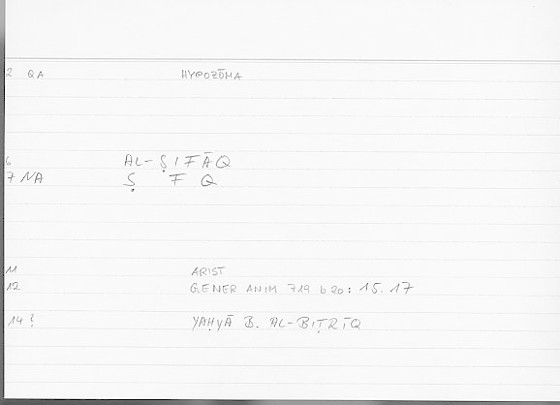 2 QA HYPOZŌMA
6 AL-ṢIFĀQ
7 NA Ṣ F Q
11 ARIST
12 GENER ANIM 719 b 20: 15.17
14? YAḤYĀ B. AL-BIṬRĪQ